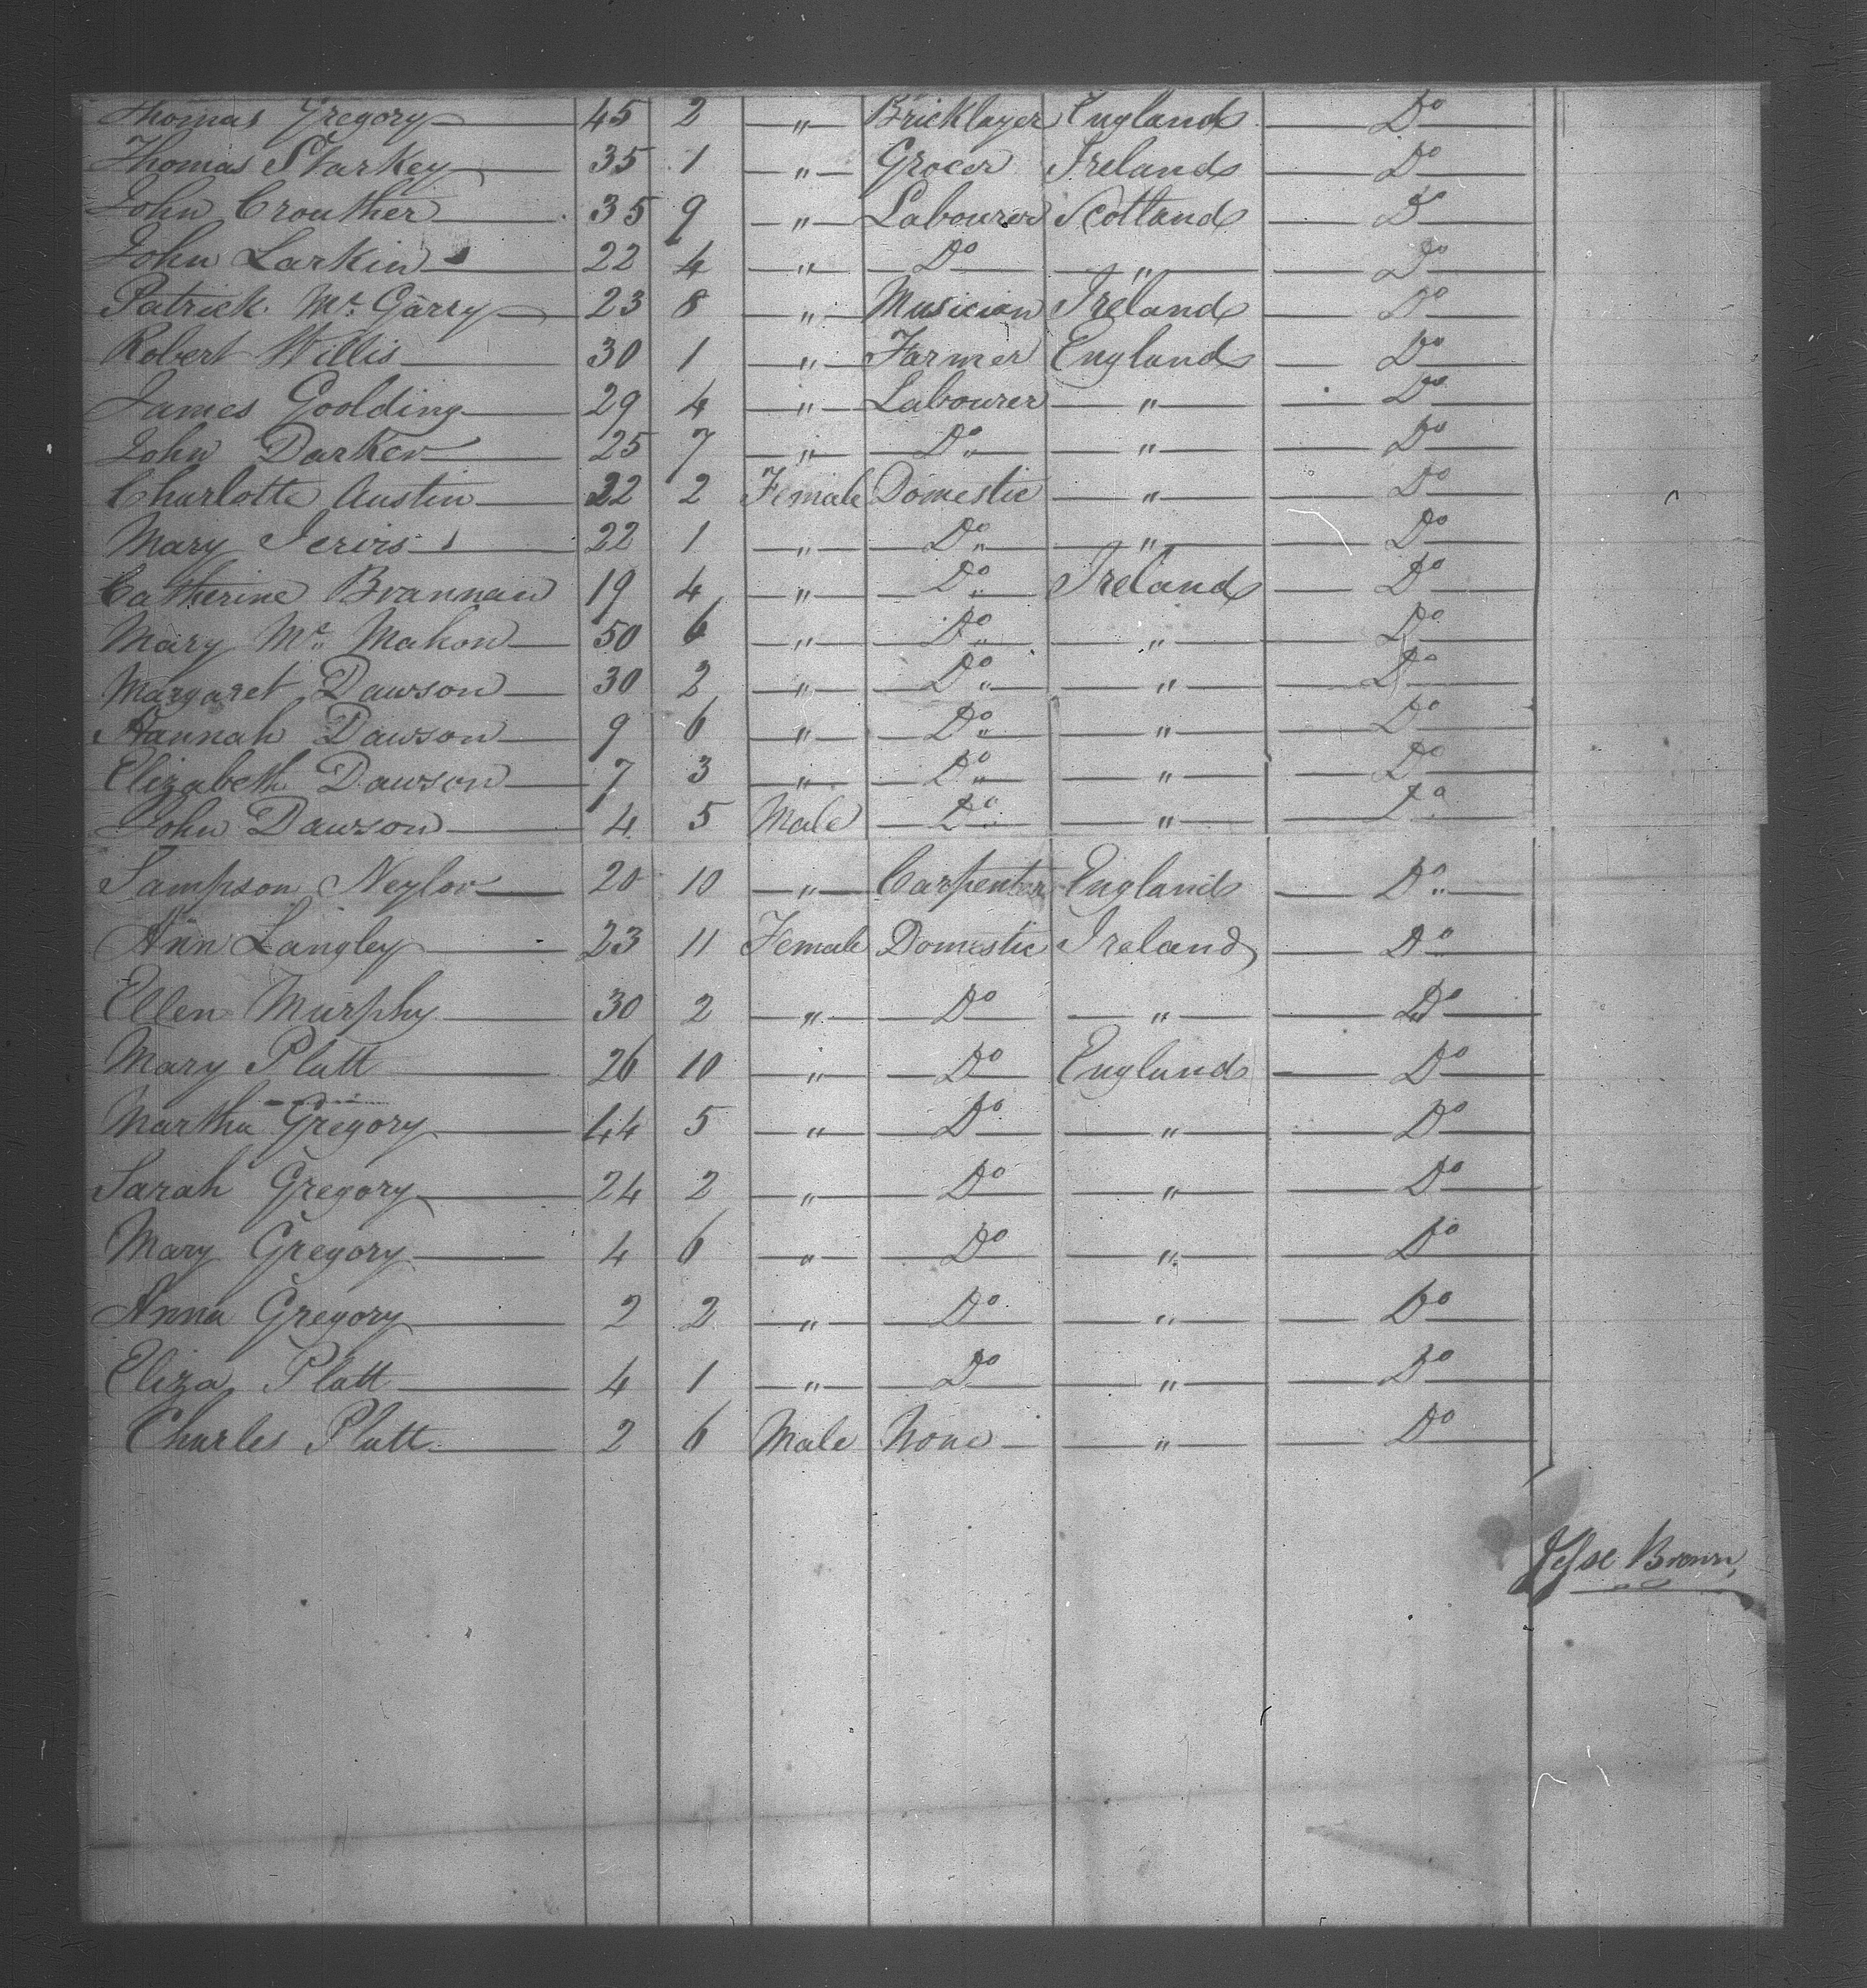 Thomas Gregory 45 2 " Bricklayer England Do
Thomas Starkey 35 1 " Grocer Ireland Do
John Crouther 35 9 " Labourer Scotland Do
John Larkin 22 4 " Do " Do
Patrick Mc Garry 23 8 " Musician Ireland Do
Robert Willis 30 1 " Farmer England Do
James Goolding 29 4 " Labourer " Do
John Darker 25 7 " Do " Do
Charlotte Austin 22 2 Female Domestic " Do
Mary Jervis 22 1 " Do " Do
Catherine Brannan 19 4 " Do Ireland Do
Mary Mc Mahon 50 6 " Do " Do
Margaret Dawson 30 2 " Do " Do
Hannah Dawson 9 6 " Do " Do
Elizabeth Dawson 7 3 " Do " Do
John Dawson 4 5 Male Do " Do
Sampson Neylor 20 10 " Carpenter England Do
Ann Langley 23 11 Female Domestic Ireland Do
Ellen Murphy 30 2 " Do " Do
Mary Platt 26 10 " Do England Do
Martha Gregory 44 5 " Do " Do
Sarah Gregory 24 2 " Do " Do
Mary Gregory 4 6 " Do " Do
Anna Gregory 2 2 " Do " Do
Eliza Platt 4 1 " Do " Do
Charles Platt 2 6 Male None " Do
Jesse Brown